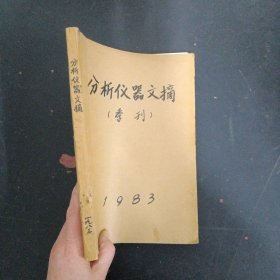 分析仪器文摘
(季刊)
1983
分析仪器文摘